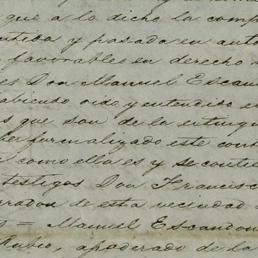 que a lo dicho la comp
ntida y pasada en auto
favorables en derecho
es Don Manuel Escan
abiendo oido y entendido
s que son de la
formalizado este cont
s como ella es y se contie
testigos Don Francisc
rados de esta vecindad
= Manuel Escandon
Rubio, apoderado de la